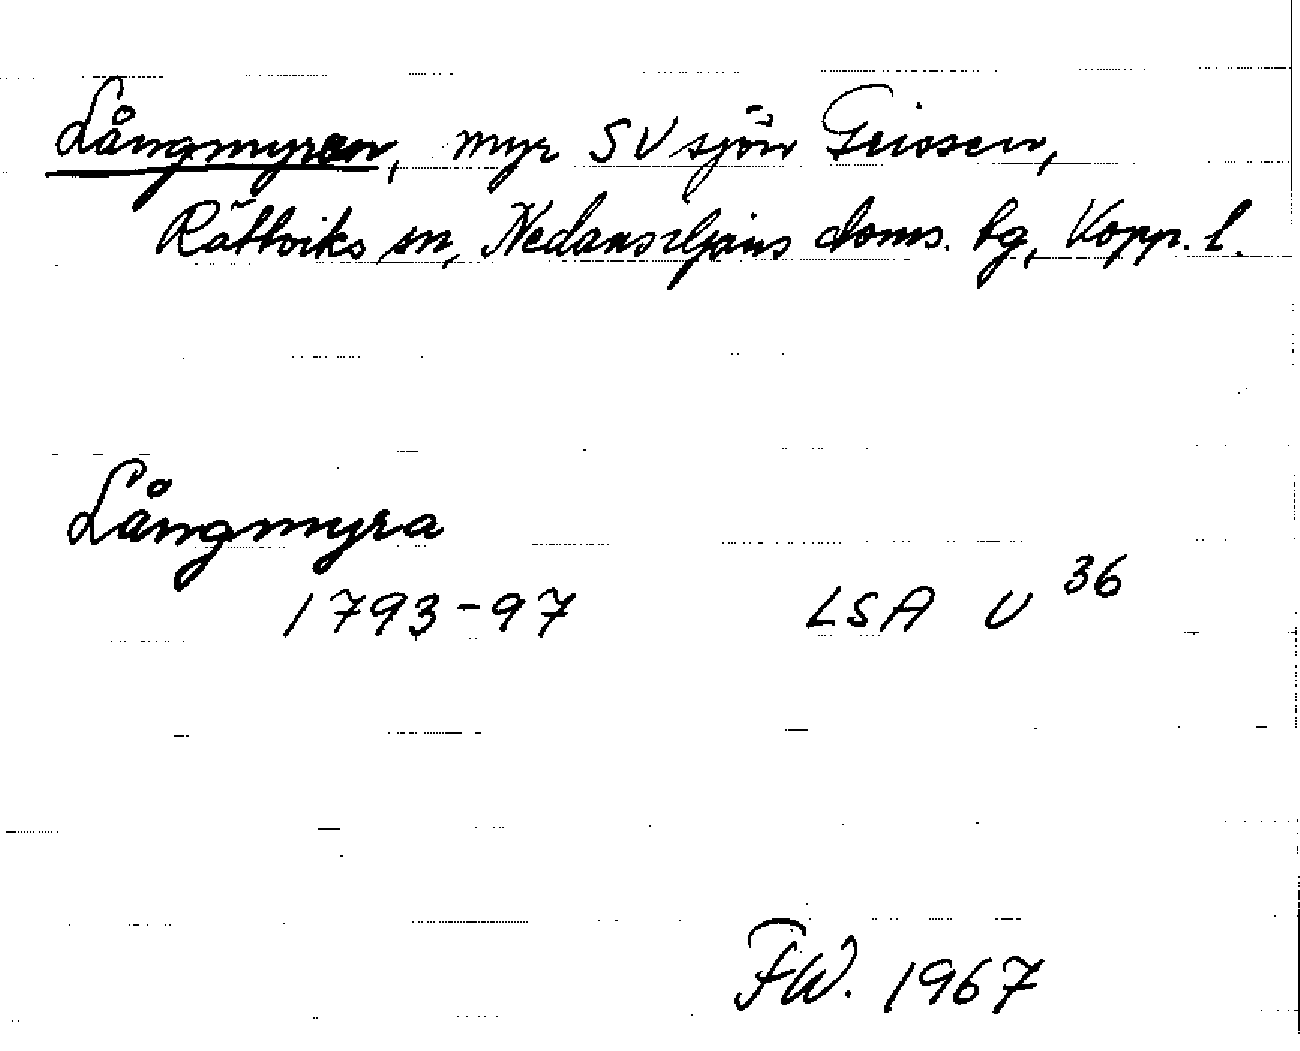 Långmyren, myr SV sjön Trissen,
Rättviks sn, Nedansiljans doms. tg, Kopp. l.
Långmyra
1793-97 LSA U 36
FW. 1967